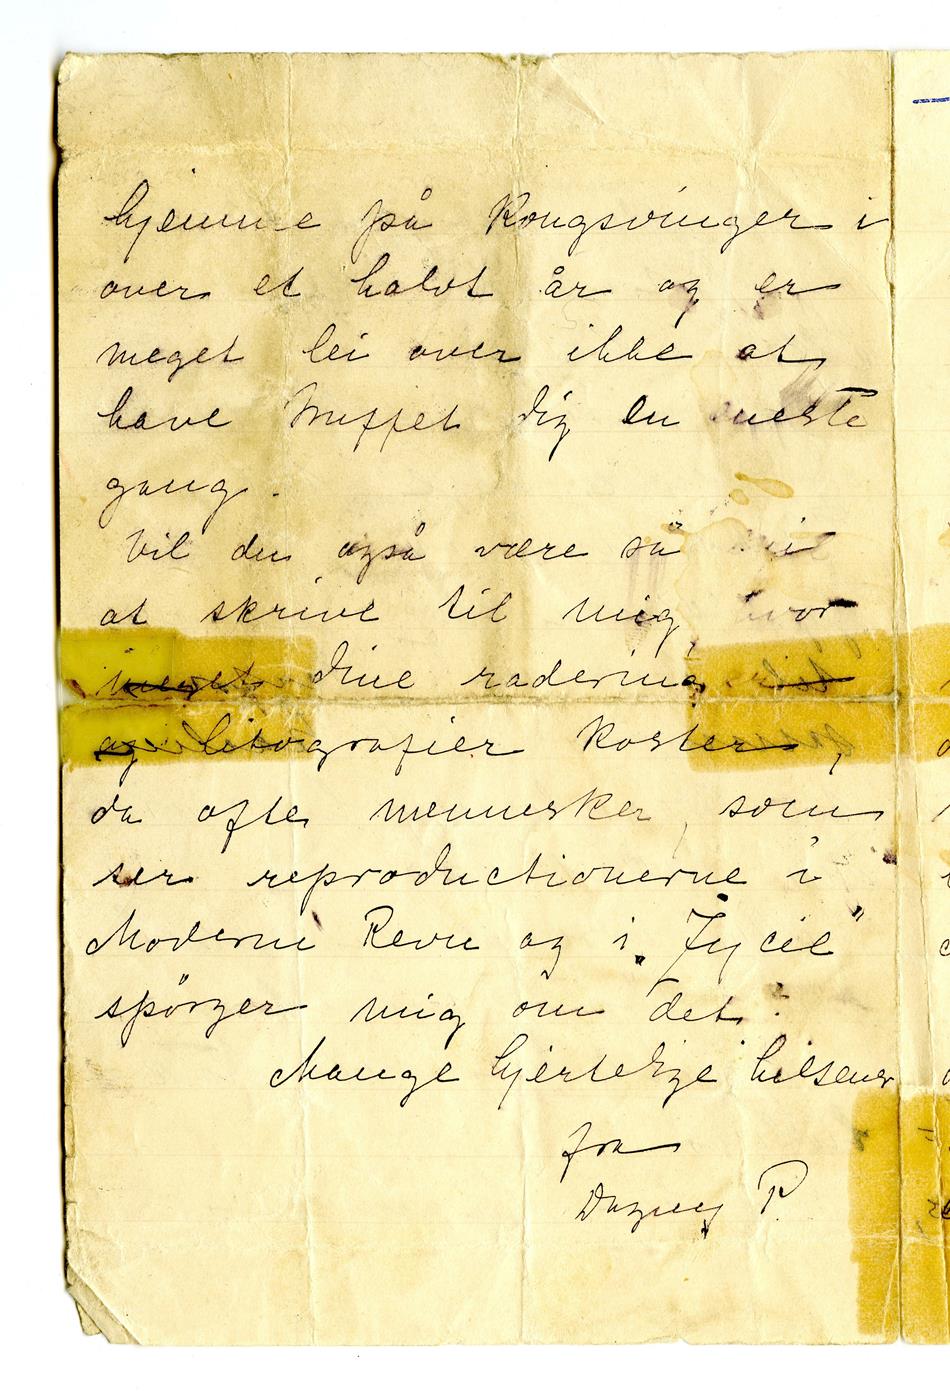 hjemme på Kongsvinger i
over et halvt år og er
meget lei over ikke at
have truffet dig en neste
gang.
Vil du også være så
at skrive til mig, hvor
meget dine radering
og litografier koster,
da ofte mennesker, som
ser reproductionerne i
Moderne Revu og i „Zycie”
spörger mig om det.
Mange hjertelige hilsener
fra
Dagny P.